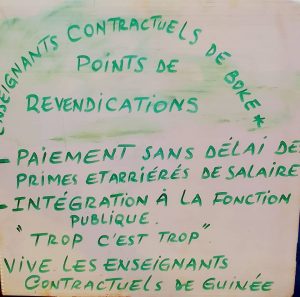 ENSEIGNANTS CONTRACTUELS DE BOKE*
POINTS DE
REVENDICATIONS
- PAIEMENT SANS DÉLAI DE
PRIMES ET ARRIÉRÉS DE SALAIRE
- INTÉGRATION À LA FONCTION
PUBLIQUE.
"TROP C'EST TROP"
VIVE LES ENSEIGNANTS
CONTRACTUELS DE GUINÉE